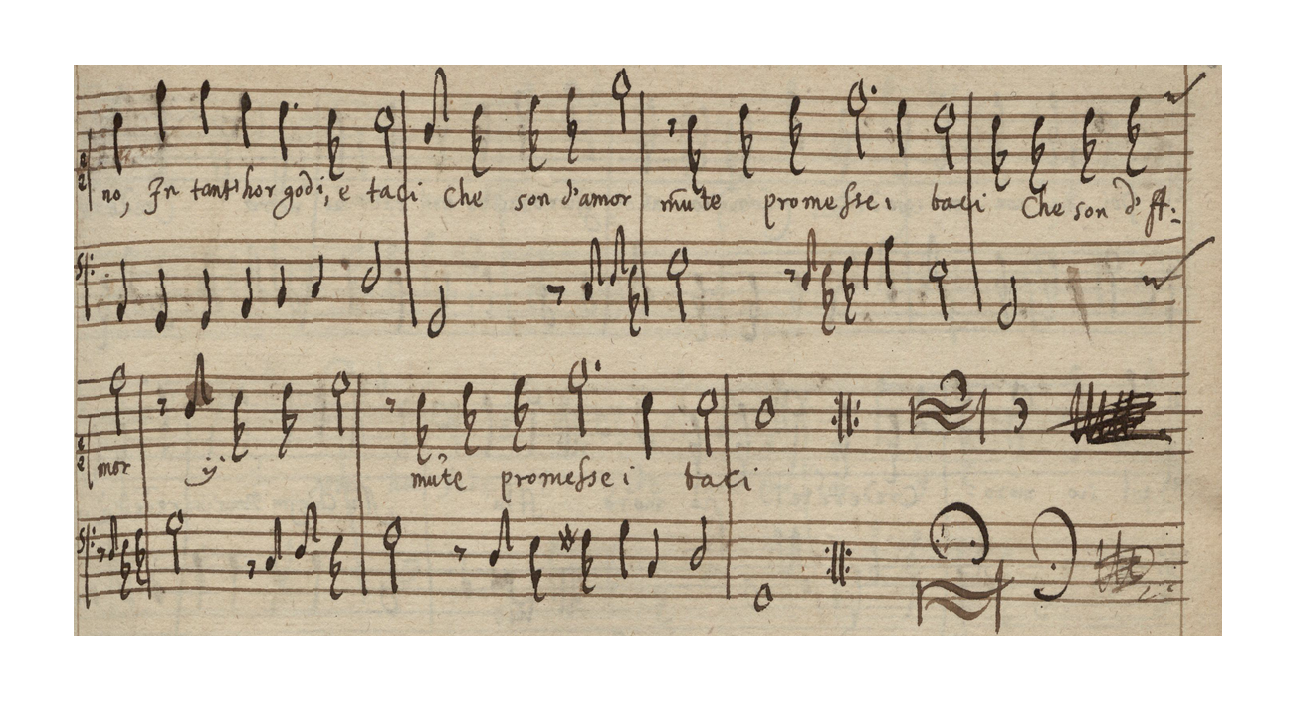 no, In tant' hor godi, e taci Che son d'amor mute promesse i baci Che son d'
mor ij. mute promesse i baci